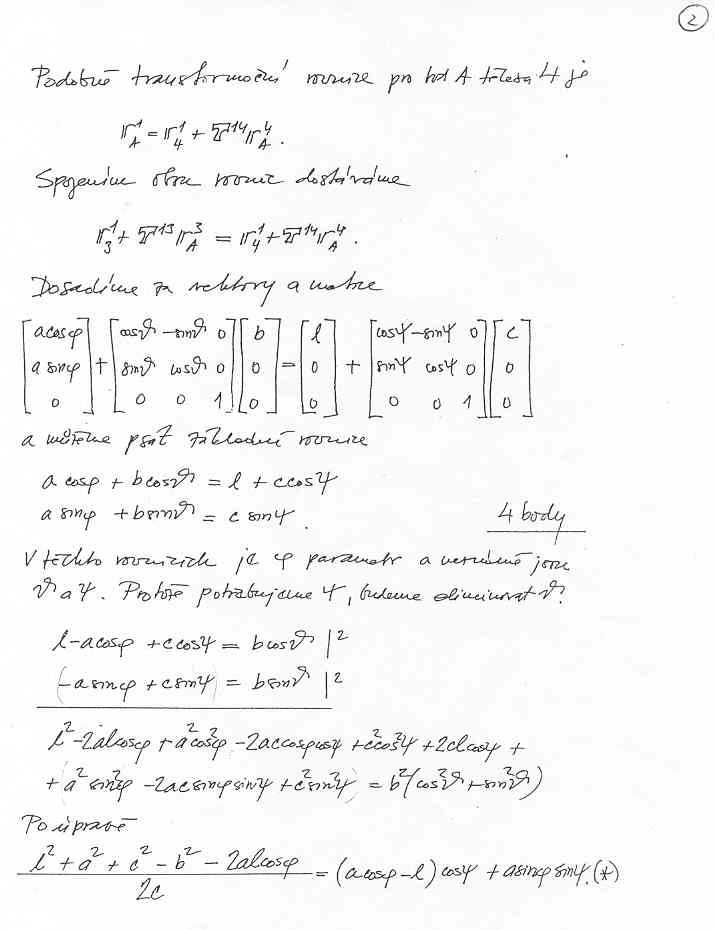 2
Podobně transformační rovnice pro bod A tělesa 4 je
r_A^1 = r_4^1 + S^{14} r_A^4 .
Spojením obou rovnic dostáváme
r_3^1 + S^{13} r_A^3 = r_4^1 + S^{14} r_A^4 .
Dosadíme za vektory a matice
[a cosφ; a sinφ; 0] + [cosϑ -sinϑ 0; sinϑ cosϑ 0; 0 0 1] [b; 0; 0] = [l; 0; 0] + [cosψ -sinψ 0; sinψ cosψ 0; 0 0 1] [c; 0; 0]
a můžeme psát základní rovnice
a cosφ + b cosϑ = l + c cosψ
a sinφ + b sinϑ = c sinψ .
4 body
V těchto rovnicích je φ parametr a neznámé jsou
ϑ a ψ. Protože potřebujeme ψ, budeme eliminovat ϑ:
l - a cosφ + c cosψ = b cosϑ |²
(-a sinφ + c sinψ) = b sinϑ |²
l² - 2al cosφ + a² cos²φ - 2ac cosφ cosψ + c² cos²ψ + 2cl cosψ +
+ (a² sin²φ - 2ac sinφ sinψ + c² sin²ψ) = b² (cos²ϑ + sin²ϑ)
Po úpravě
(l² + a² + c² - b² - 2al cosφ) / 2c = (a cosφ - l) cosψ + a sinφ sinψ. (*)